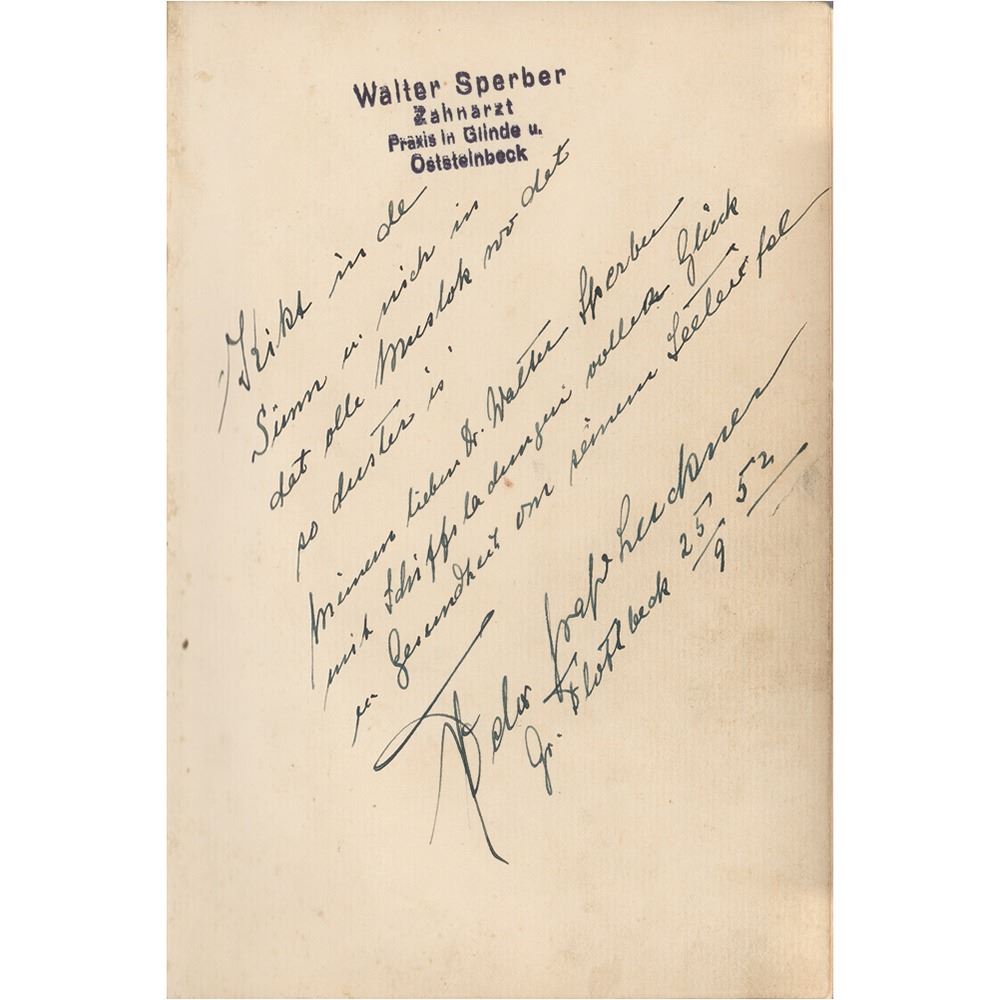 Walter Sperber
Zahnarzt
Praxis in Glinde u.
Oststeinbeck
Kikt in de
Sünn u. nich in
dat olle Muslok wo dat
so duster is.
Meinem lieben Dr. Walter Sperber
mit Schiffsladungen voller Glück
u. Gesundheit von seinem Seeteufel
Felix Graf Luckner
Gr. Flottbeck 25/9 52